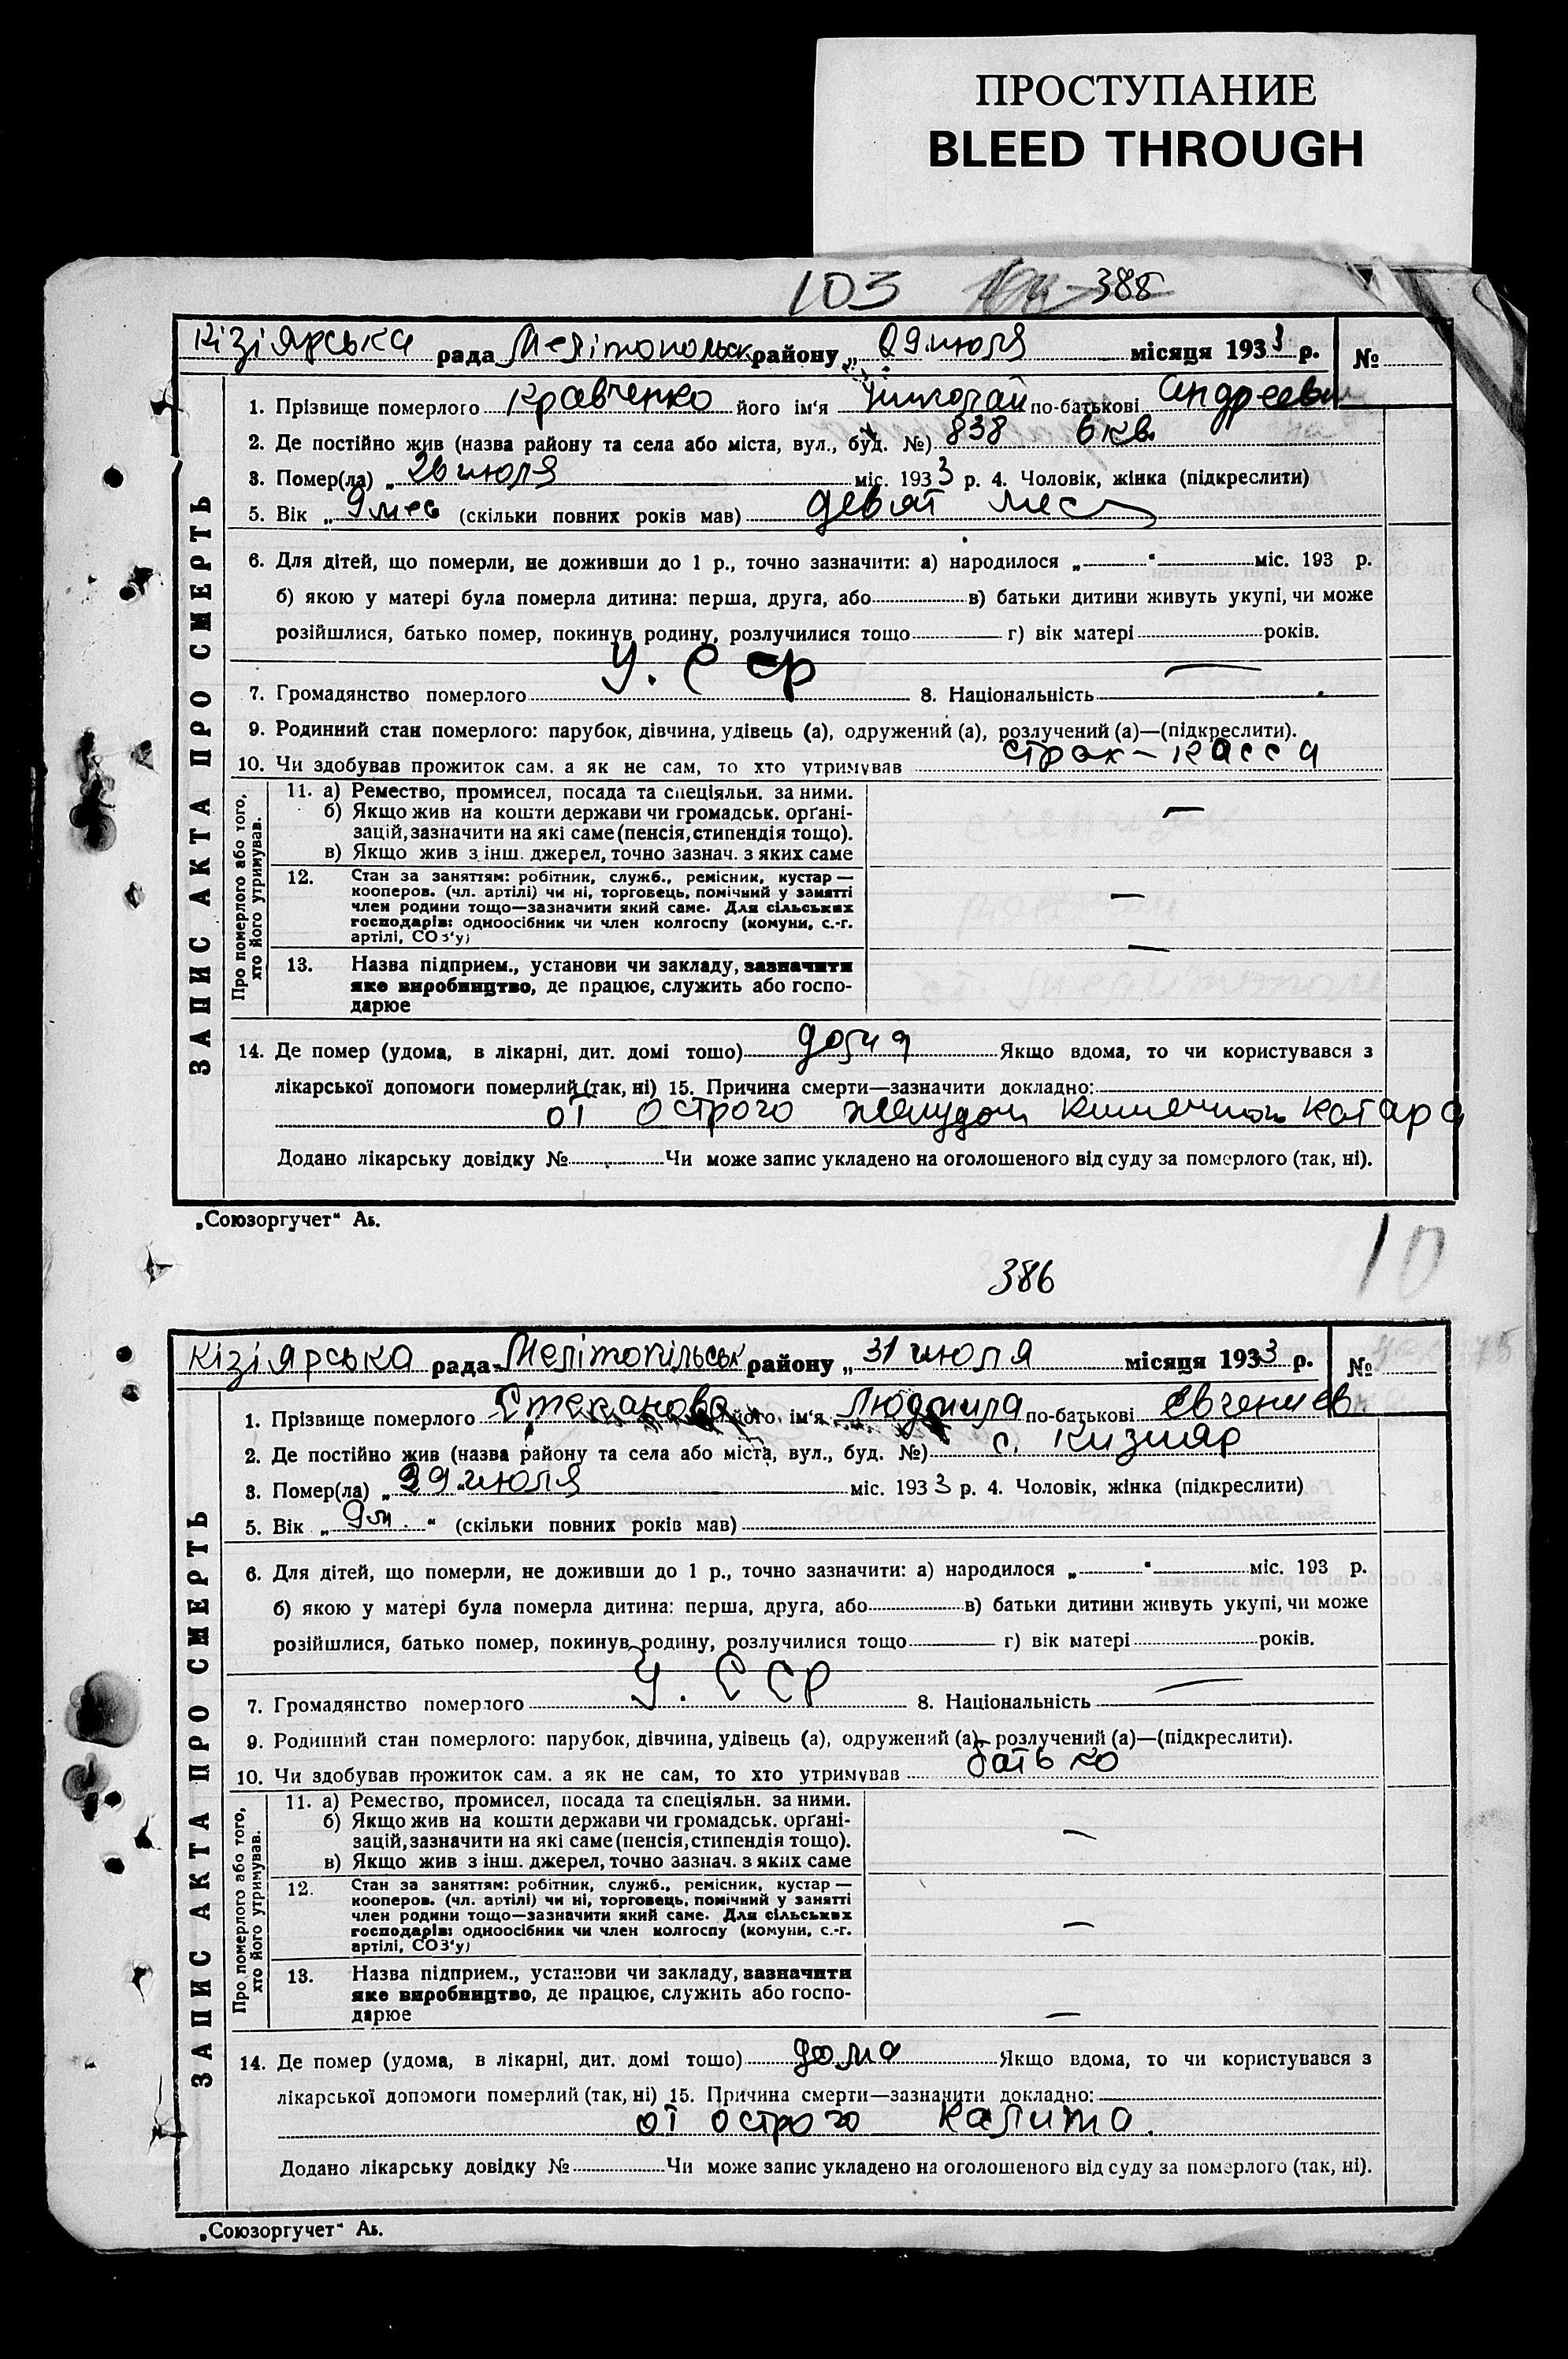 ПРОСТУПАНИЕ
BLEED THROUGH
103 385
Кізіярська рада Мелітопольськ району „29 июля місяця 1933 р. №
1. Прізвище померлого Кравченко його ім‘я Николай по-батькові Андреевич
2. Де постійно жив (назва району та села або міста, вул., буд. №) 838 6 кв.
3. Помер(ла) „26 июля міс. 1933 р. 4. Чоловік, жінка (підкреслити)
5. Вік „9 мес (скільки повних років мав) девят мес
6. Для дітей, що померли, не доживши до 1 р., точно зазначити: а) народилося „ “ міс. 193 р.
б) якою у матері була померла дитина: перша, друга, або в) батьки дитини живуть укупі, чи може
розійшлися, батько помер, покинув родину, розлучилися тощо г) вік матері років.
7. Громадянство померлого У. С ср 8. Національність —
9. Родинний стан померлого: парубок, дівчина, удівець (а), одружений (а), розлучений (а)—(підкреслити).
10. Чи здобував прожиток сам. а як не сам, то хто утримував страх-касса
Про померлого або того, хто його утримував.
11. а) Ремество, промисел, посада та спеціяльн. за ними.
б) Якщо жив на кошти держави чи громадськ. орґані-
зацій, зазначити на які саме (пенсія, стипендія тощо). —
в) Якщо жив з інш. джерел, точно зазнач. з яких саме
12. Стан за заняттям: робітник, служб., ремісник, кустар —
кооперов. (чл. артілі) чи ні, торговець, помічний у занятті
член родини тощо—зазначити який саме. Для сільських
господарів: одноосібник чи член колгоспу (комуни, с.-г.
артілі, СОЗ‘у) —
13. Назва підприєм., установи чи закладу, зазначити
яке виробництво, де працює, служить або госпо-
дарює —
14. Де помер (удома, в лікарні, дит. домі тошо) дома Якщо вдома, то чи користувався з
лікарської допомоги померлий (так, ні) 15. Причина смерти—зазначити докладно:
от острого желудочн кишечного катара
Додано лікарську довідку № Чи може запис укладено на оголошеного від суду за померлого (так, ні).
ЗАПИС АКТА ПРО СМЕРТЬ
„Союзоргучет“ Аь.
10
386
Кізіярська рада Мелітопільськ району „31 июля місяця 1933 р. №
1. Прізвище померлого Стеканова його ім‘я Людмила по-батькові Евгениев
2. Де постійно жив (назва району та села або міста, вул., буд. №) с. Кизияр
3. Помер(ла) „29 июля міс. 1933 р. 4. Чоловік, жінка (підкреслити)
5. Вік „9 м “ (скільки повних років мав)
6. Для дітей, що померли, не доживши до 1 р., точно зазначити: а) народилося „ “ міс. 193 р.
б) якою у матері була померла дитина: перша, друга, або в) батьки дитини живуть укупі, чи може
розійшлися, батько помер, покинув родину, розлучилися тощо г) вік матері років.
7. Громадянство померлого У. ССР 8. Національність —
9. Родинний стан померлого: парубок, дівчина, удівець (а), одружений (а), розлучений (а)—(підкреслити).
10. Чи здобував прожиток сам. а як не сам, то хто утримував батько
Про померлого або того, хто його утримував.
11. а) Ремество, промисел, посада та спеціяльн. за ними.
б) Якщо жив на кошти держави чи громадськ. орґані-
зацій, зазначити на які саме (пенсія, стипендія тощо). —
в) Якщо жив з інш. джерел, точно зазнач. з яких саме
12. Стан за заняттям: робітник, служб., ремісник, кустар —
кооперов. (чл. артілі) чи ні, торговець, помічний у занятті
член родини тощо—зазначити який саме. Для сільських
господарів: одноосібник чи член колгоспу (комуни, с.-г.
артілі, СОЗ‘у) —
13. Назва підприєм., установи чи закладу, зазначити
яке виробництво, де працює, служить або госпо-
дарює —
14. Де помер (удома, в лікарні, дит. домі тошо) дома Якщо вдома, то чи користувався з
лікарської допомоги померлий (так, ні) 15. Причина смерти—зазначити докладно:
от острого калита.
Додано лікарську довідку № Чи може запис укладено на оголошеного від суду за померлого (так, ні).
ЗАПИС АКТА ПРО СМЕРТЬ
„Союзоргучет“ Аь.